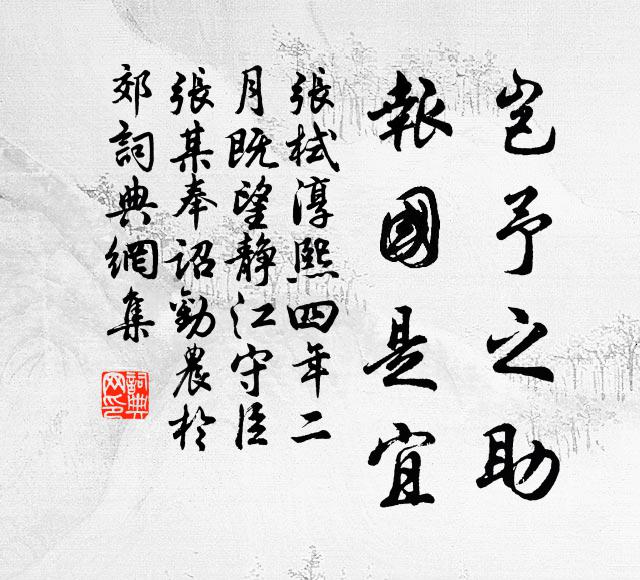 岂予之助
報國是宜
張栻淳熙四年二
月既望静江守臣
張某奉詔勸農於
郊詞典網集
詞典
网印